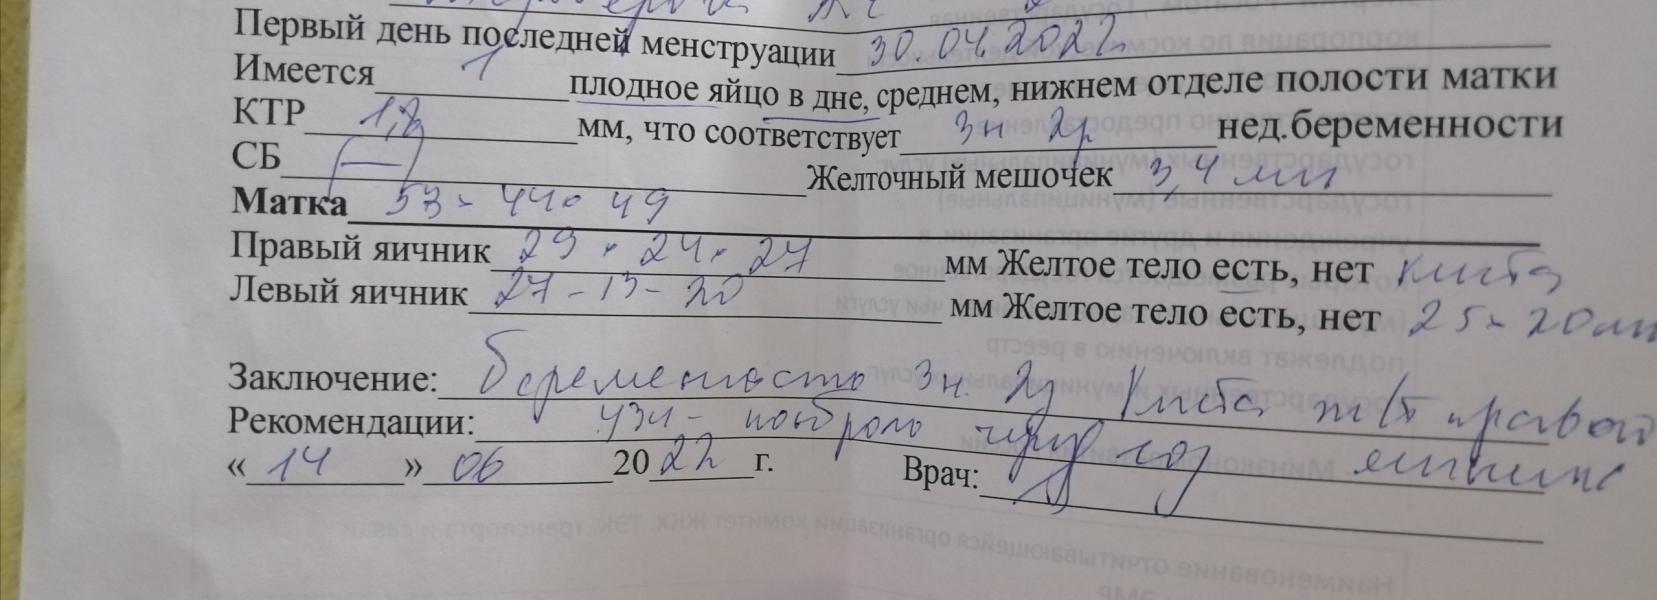 Первый день последней менструации 30.04.2022
Имеется 1 плодное яйцо в дне, среднем, нижнем отделе полости матки
КТР 1,8 мм, что соответствует 3н 2д нед.беременности
СБ (—) Желточный мешочек 3,4 мм
Матка 53 × 44 × 49
Правый яичник 29 × 24 × 27 мм Желтое тело есть, нет киста
Левый яичник 27 - 13 - 20 мм Желтое тело есть, нет 25 × 20 мм
Заключение: беременность 3н. 2д Киста ж/т правого
Рекомендации: УЗИ - контроль через яичника
« 14 » 06 2022 г. Врач: